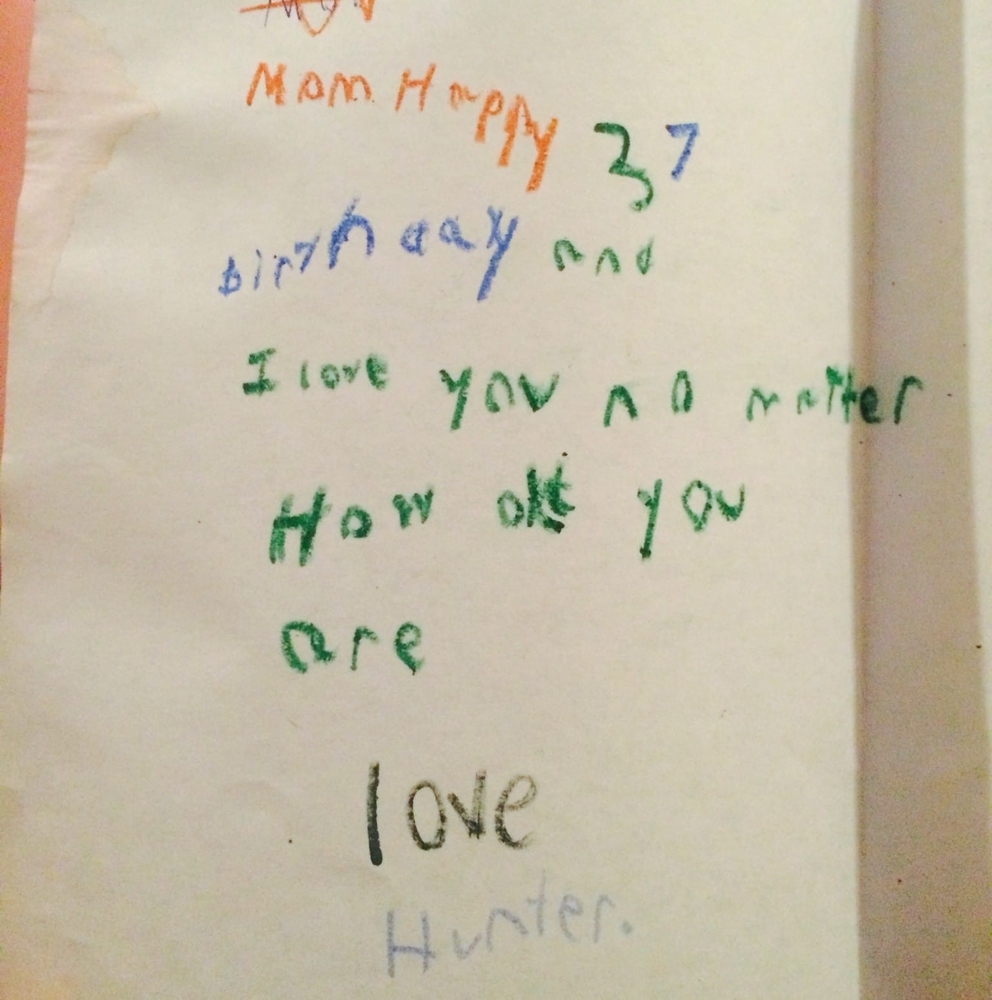 Mom Happy 37
birthday and
I love you no matter
How old you
are
love
Hunter.